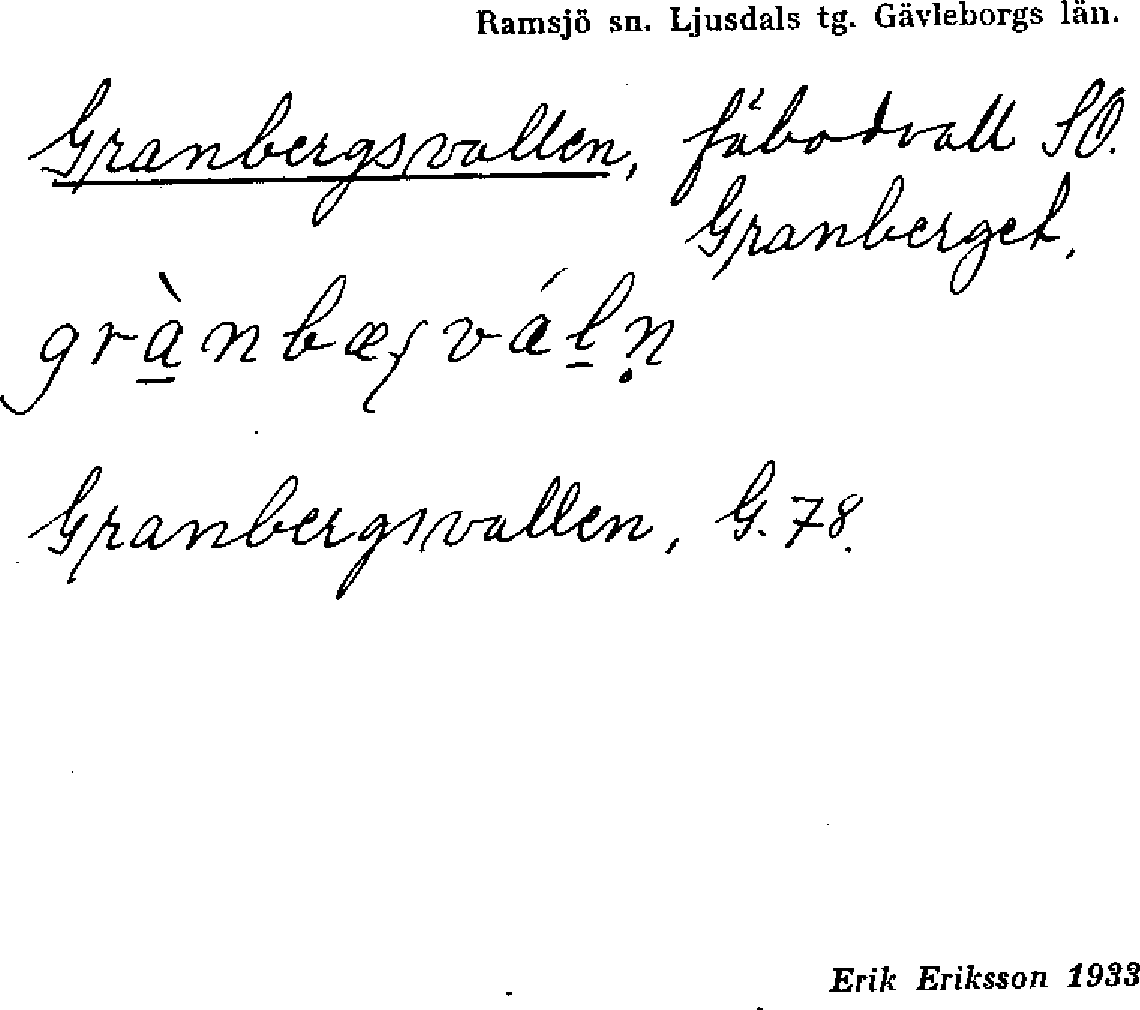 Ramsjö sn. Ljusdals tg. Gävleborgs län.
Granbergsvallen, fäbodvall SO.
Granberget.
grànbæʂváḷṇ
Granbergsvallen, G. 78.
Erik Eriksson 1933